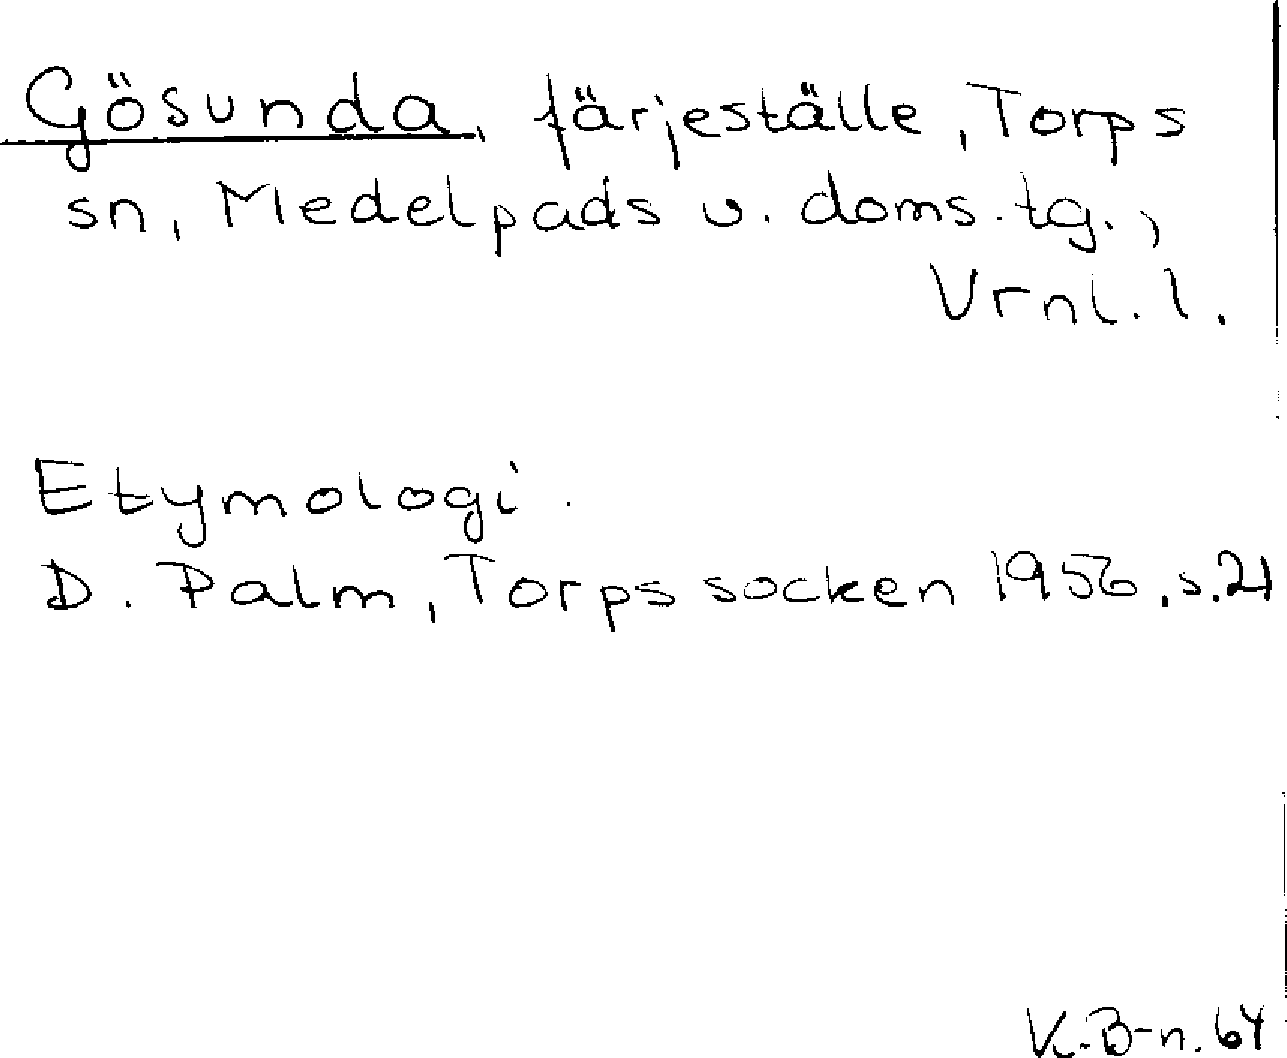 Gösunda, färjeställe, Torps
sn, Medelpads v. doms.tg.,
Vrnl. l.
Etymologi.
D. Palm, Torps socken 1956, s. 21
K. B-n. 64